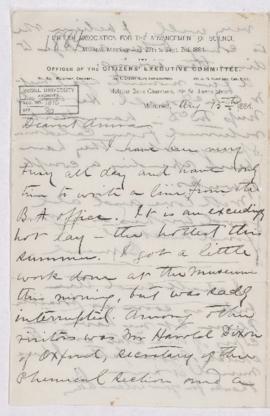 BRITISH ASSOCIATION FOR THE ADVANCEMENT OF SCIENCE.
OFFICES OF THE CITIZENS' EXECUTIVE COMMITTEE,
Montreal, Aug 13th 1884.
McGILL UNIVERSITY
ARCHIVES
ACC. NO. 1075
REF.
Dearest Anna
I have been very
busy all day and have only
time to write a line from the
B.A office. It is an exceedingly
hot day – the hottest this
summer. I got a little
work done at the Museum
this morning, but was sadly
interrupted. Among other
visitors was Mr Harold Dixon
of Oxford, secretary of the
Chemical Section and a